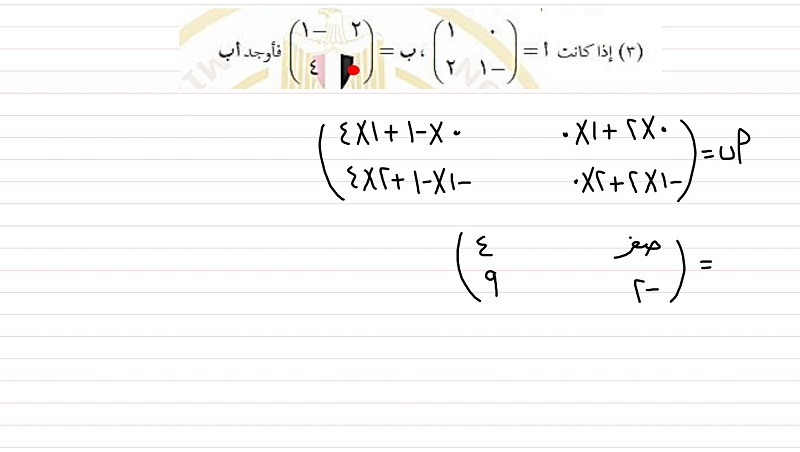 (٣) إذا كانت أ = (٠ ١ ، ب = (٢ -١ فأوجد أب
-١ ٢) ٤)
أب = (٠×٢ + ١×٠ ٠×-١ + ١×٤
-١×٢ + ٢×٠ -١×-١ + ٢×٤)
= (صفر ٤
-٢ ٩)